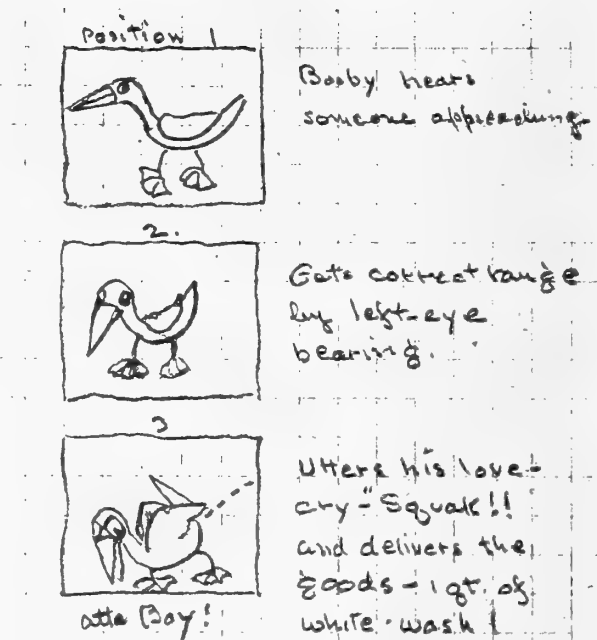 Position 1
Booby hears
someone approaching.
2.
Gets correct range
by left-eye
bearing.
3
Utters his love-
cry-"Squak!!
and delivers the
goods - 1 qt. of
white-wash!
atta Boy!